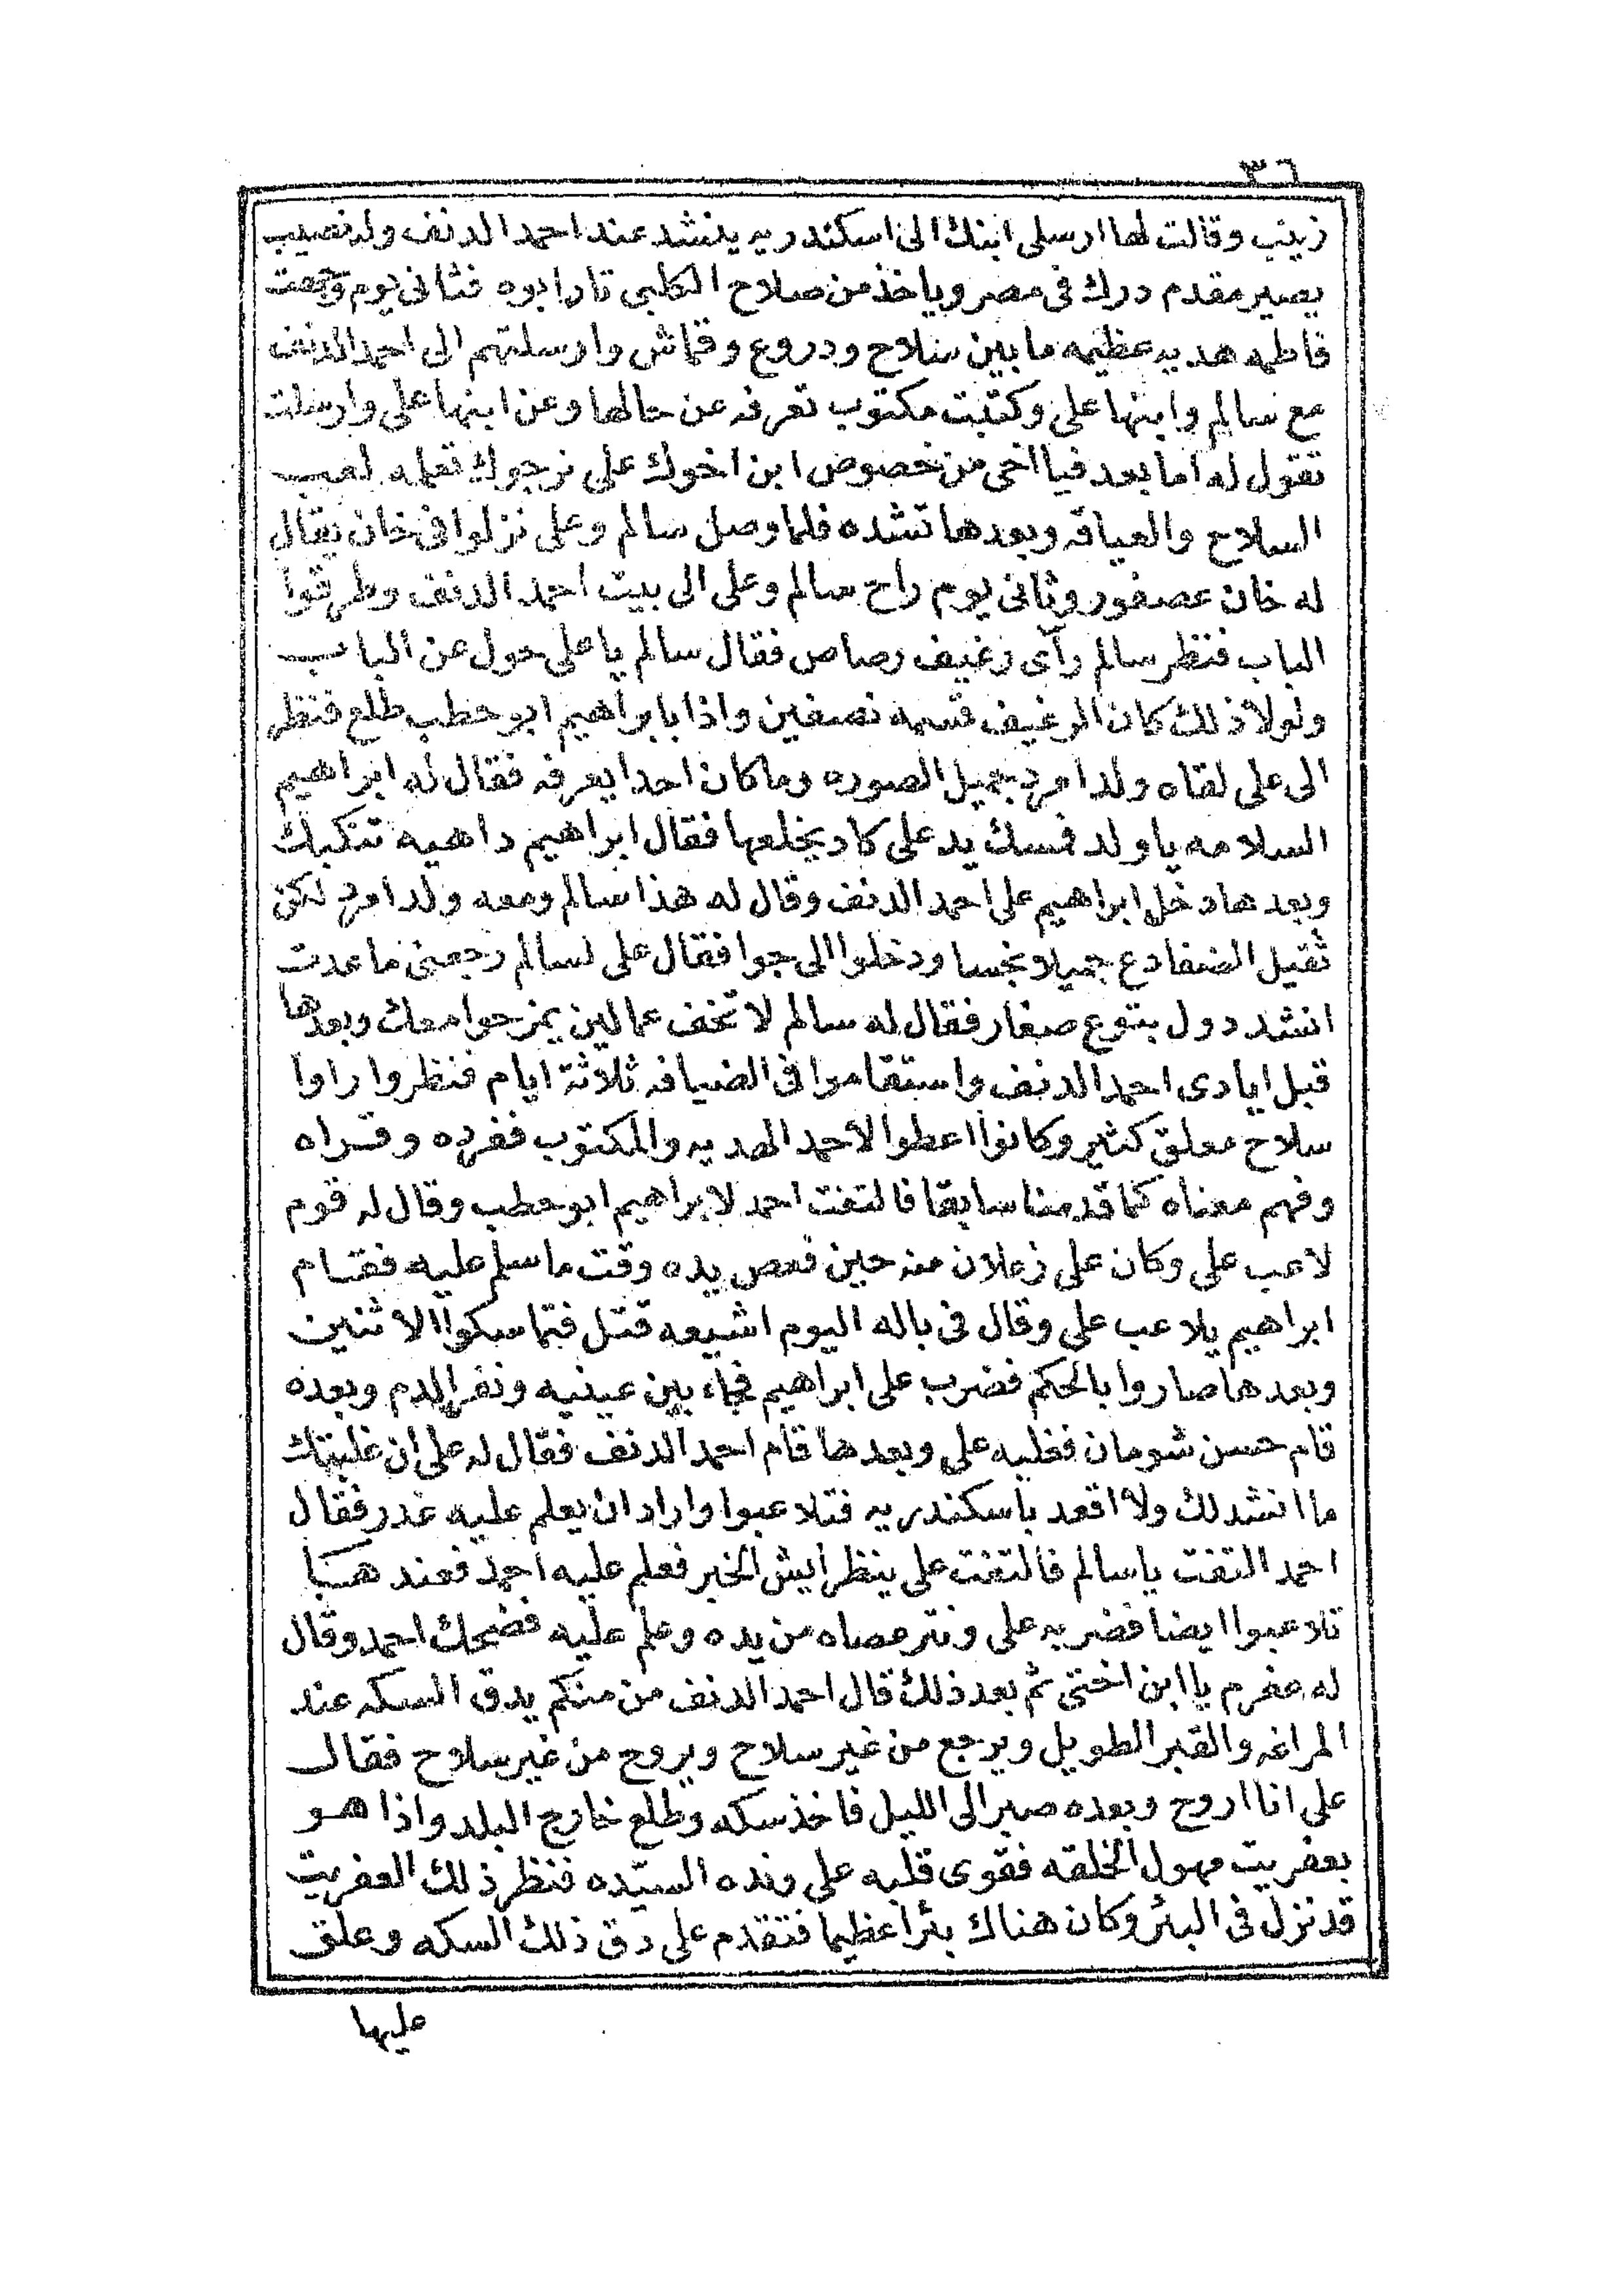 ٣٦
زينب وقالت لها ارسلى ابنك الى اسكندريه ينشد عند احمد الدنف وله نصيب
يصير مقدم درك فى مصر وياخذ من صلاح الكلبى تار ابوه فثانى يوم وجهت
فاطمه هديه عظيمه ما بين سلاح ودروع وقماش وارسلتهم الى احمد الدنف
مع سالم وابنها على وكتبت مكتوب تعرفه عن حالها وعن ابنها على وارسلت
تقول له اما بعد فيا اخى من خصوص ابن اخوك على نرجوك تعلمه لعب
السلاح والعياقه وبعدها تشده فلما وصل سالم وعلى نزلوا فى خان يقال
له خان عصفور وثانى يوم راح سالم وعلى الى بيت احمد الدنف وطرقوا
الباب فنظر سالم رآى رغيف رصاص فقال سالم يا على حول عن الباب
ولولا ذلك كان الرغيف قسمه نصفين واذا بابراهيم ابو حطب طلع فنظر
الى على لقاه ولد امرد جميل الصوره وما كان احد يعرفه فقال له ابراهيم
السلامه يا ولد فمسك يد على كاد يخلعها فقال ابراهيم داهيه تنكبك
وبعدها دخل ابراهيم على احمد الدنف وقال له هذا سالم ومعه ولد امرد لكن
ثقيل الضفادع جميلا نجسا ودخلوا الى جوا فقال على لسالم رجعنى ما عدت
انشد دول بتوع صغار فقال له سالم لا تخف عمالين يمزحوا معك وبعدها
قبل ايادى احمد الدنف واستقاموا فى الضيافه ثلاثة ايام فنظروا راوا
سلاح معلق كثير وكانوا اعطوا لاحمد الهديه والمكتوب ففرده وقراه
وفهم معناه كما قدمنا سابقا فالتفت احمد لابراهيم ابو حطب وقال له قوم
لاعب على وكان على زعلان منه حين فعص يده وقت ما سلم عليه فقام
ابراهيم يلاعب على وقال فى باله اليوم اشيعه قتل فتماسكوا الاثنين
وبعدها صاروا بالحكم فضرب على ابراهيم فجاء بين عينيه ونفر الدم وبعده
قام حسن شومان فغلبه على وبعدها قام احمد الدنف فقال له على ان غلبتك
ما انشد لك ولا اقعد باسكندريه فتلاعبوا واراد ان يعلم عليه غدر فقال
احمد التفت يا سالم فالتفت على ينظر ايش الخبر فعلم عليه احمد فعند هـا
تلاعبوا ايضا فضربه على ونتر عصاه من يده وعلم عليه فضحك احمد وقال
له عفرم يا ابن اختى ثم بعد ذلك قال احمد الدنف من منكم يدق السكه عند
المراغه والقبر الطويل ويرجع من غير سلاح ويروح من غير سلاح فقال
على انا اروح وبعده صبر الى الليل فاخذ سكه وطلع خارج البلد واذا هو
بعفريت مهول الخلقه فقوى قلبه على ونده السيّده فنظر ذلك العفريت
قد نزل فى البئر وكان هناك بئرا عظيما فتقدم على دق ذلك السكه وعلق
عليها